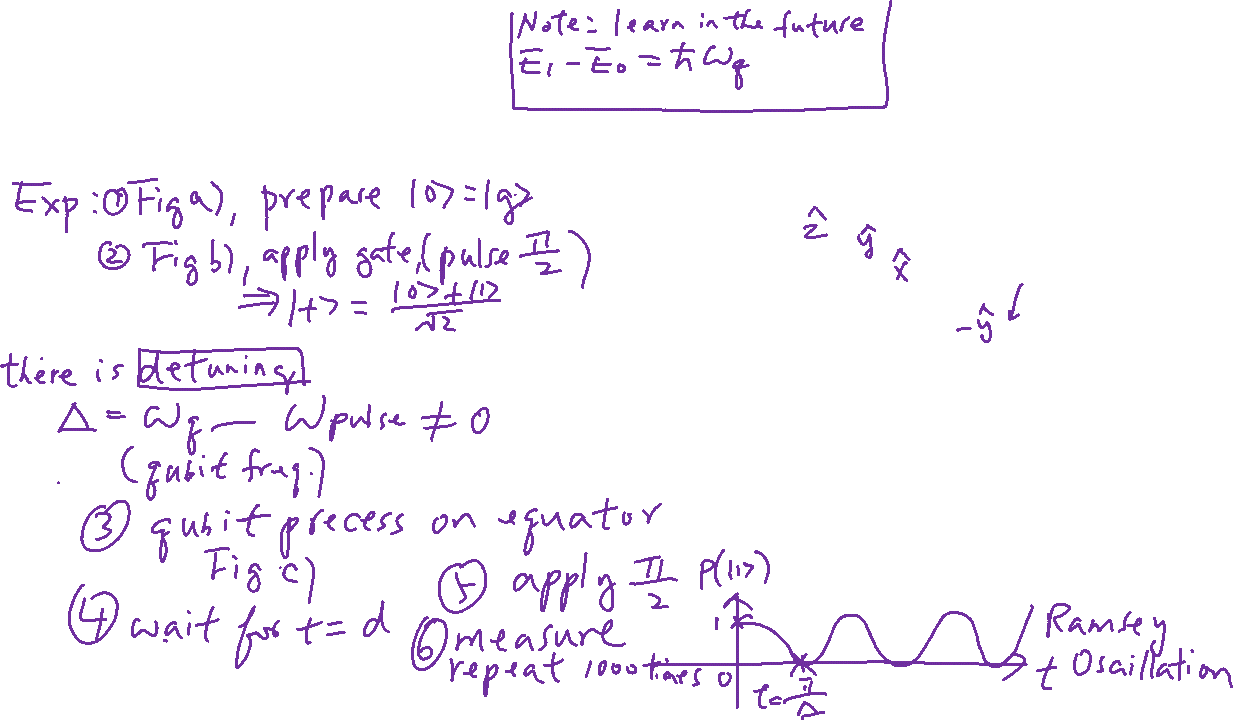 Note: learn in the future
E₁ - E₀ = ℏ ω_q
Exp: ① Fig a), prepare |0> = |g>
② Fig b), apply gate, (pulse π/2)
⇒ |+> = (|0> + |1>)/√2
there is detuning
Δ = ω_q - ω_pulse ≠ 0
(qubit freq.)
③ qubit precess on equator
Fig c)
④ wait for t = d
⑤ apply π/2
⑥ measure
repeat 1000 times
ẑ ŷ x̂
-ŷ
P(|1>)
1
0
t = π/Δ
t
Ramsey
Osaillation